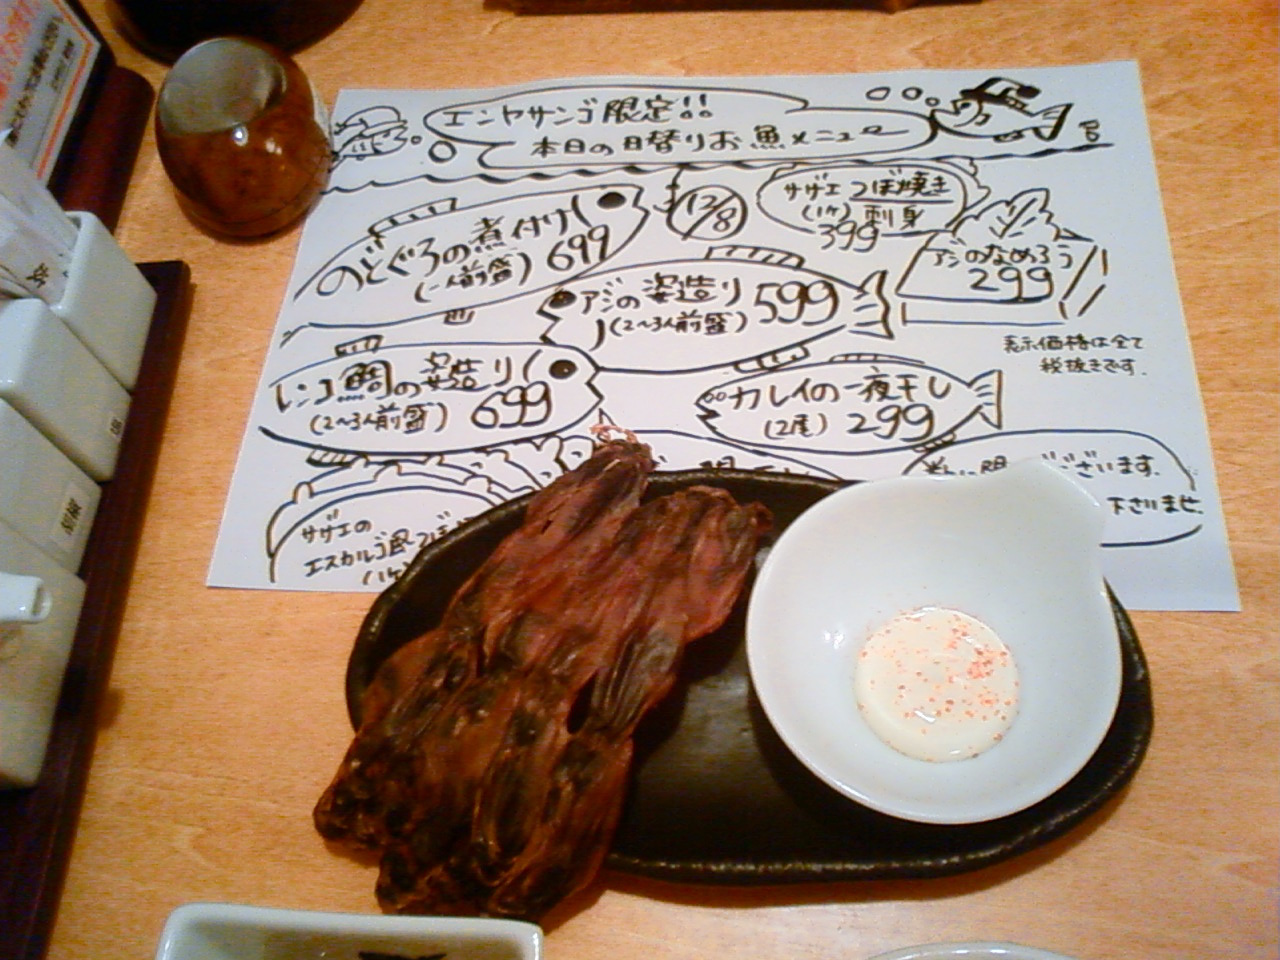 エンヤサンゴ限定!!
本日の日替りお魚メニュー
12/8
のどぐろの煮付け
(一人前盛) 699
サザエ つぼ焼き
(1ヶ) 刺身
399
アジのなめろう
299
アジの姿造り 599
(2〜3人前盛)
レンコ鯛の姿造り
(2〜3人前盛) 699
カレイの一夜干し
(2尾) 299
表示価格は全て
税抜きです.
サザエの
エスカルゴ風つぼ
(1ヶ
ございます.
下さいませ.